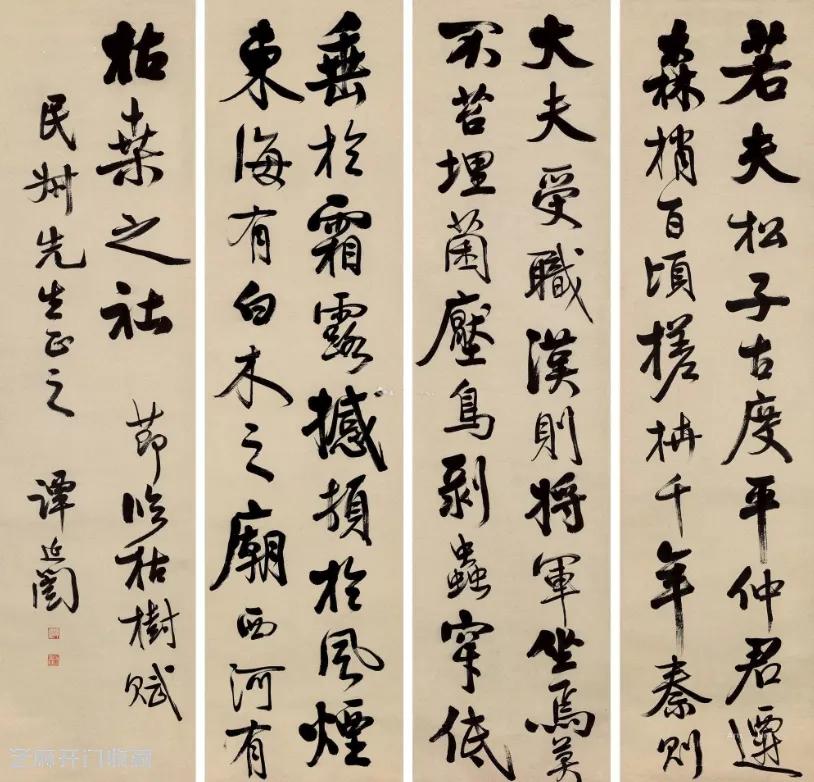 若夫松子古度平仲君遷
森梢百頃槎枿千年秦則
大夫受職漢則將軍坐焉莫
不苔埋菌壓鳥剝蟲穿低
垂於霜露撼頓於風煙
東海有白木之廟西河有
枯桒之社 節臨枯樹賦
民州先生正之 譚延闓
芝麻开门收藏